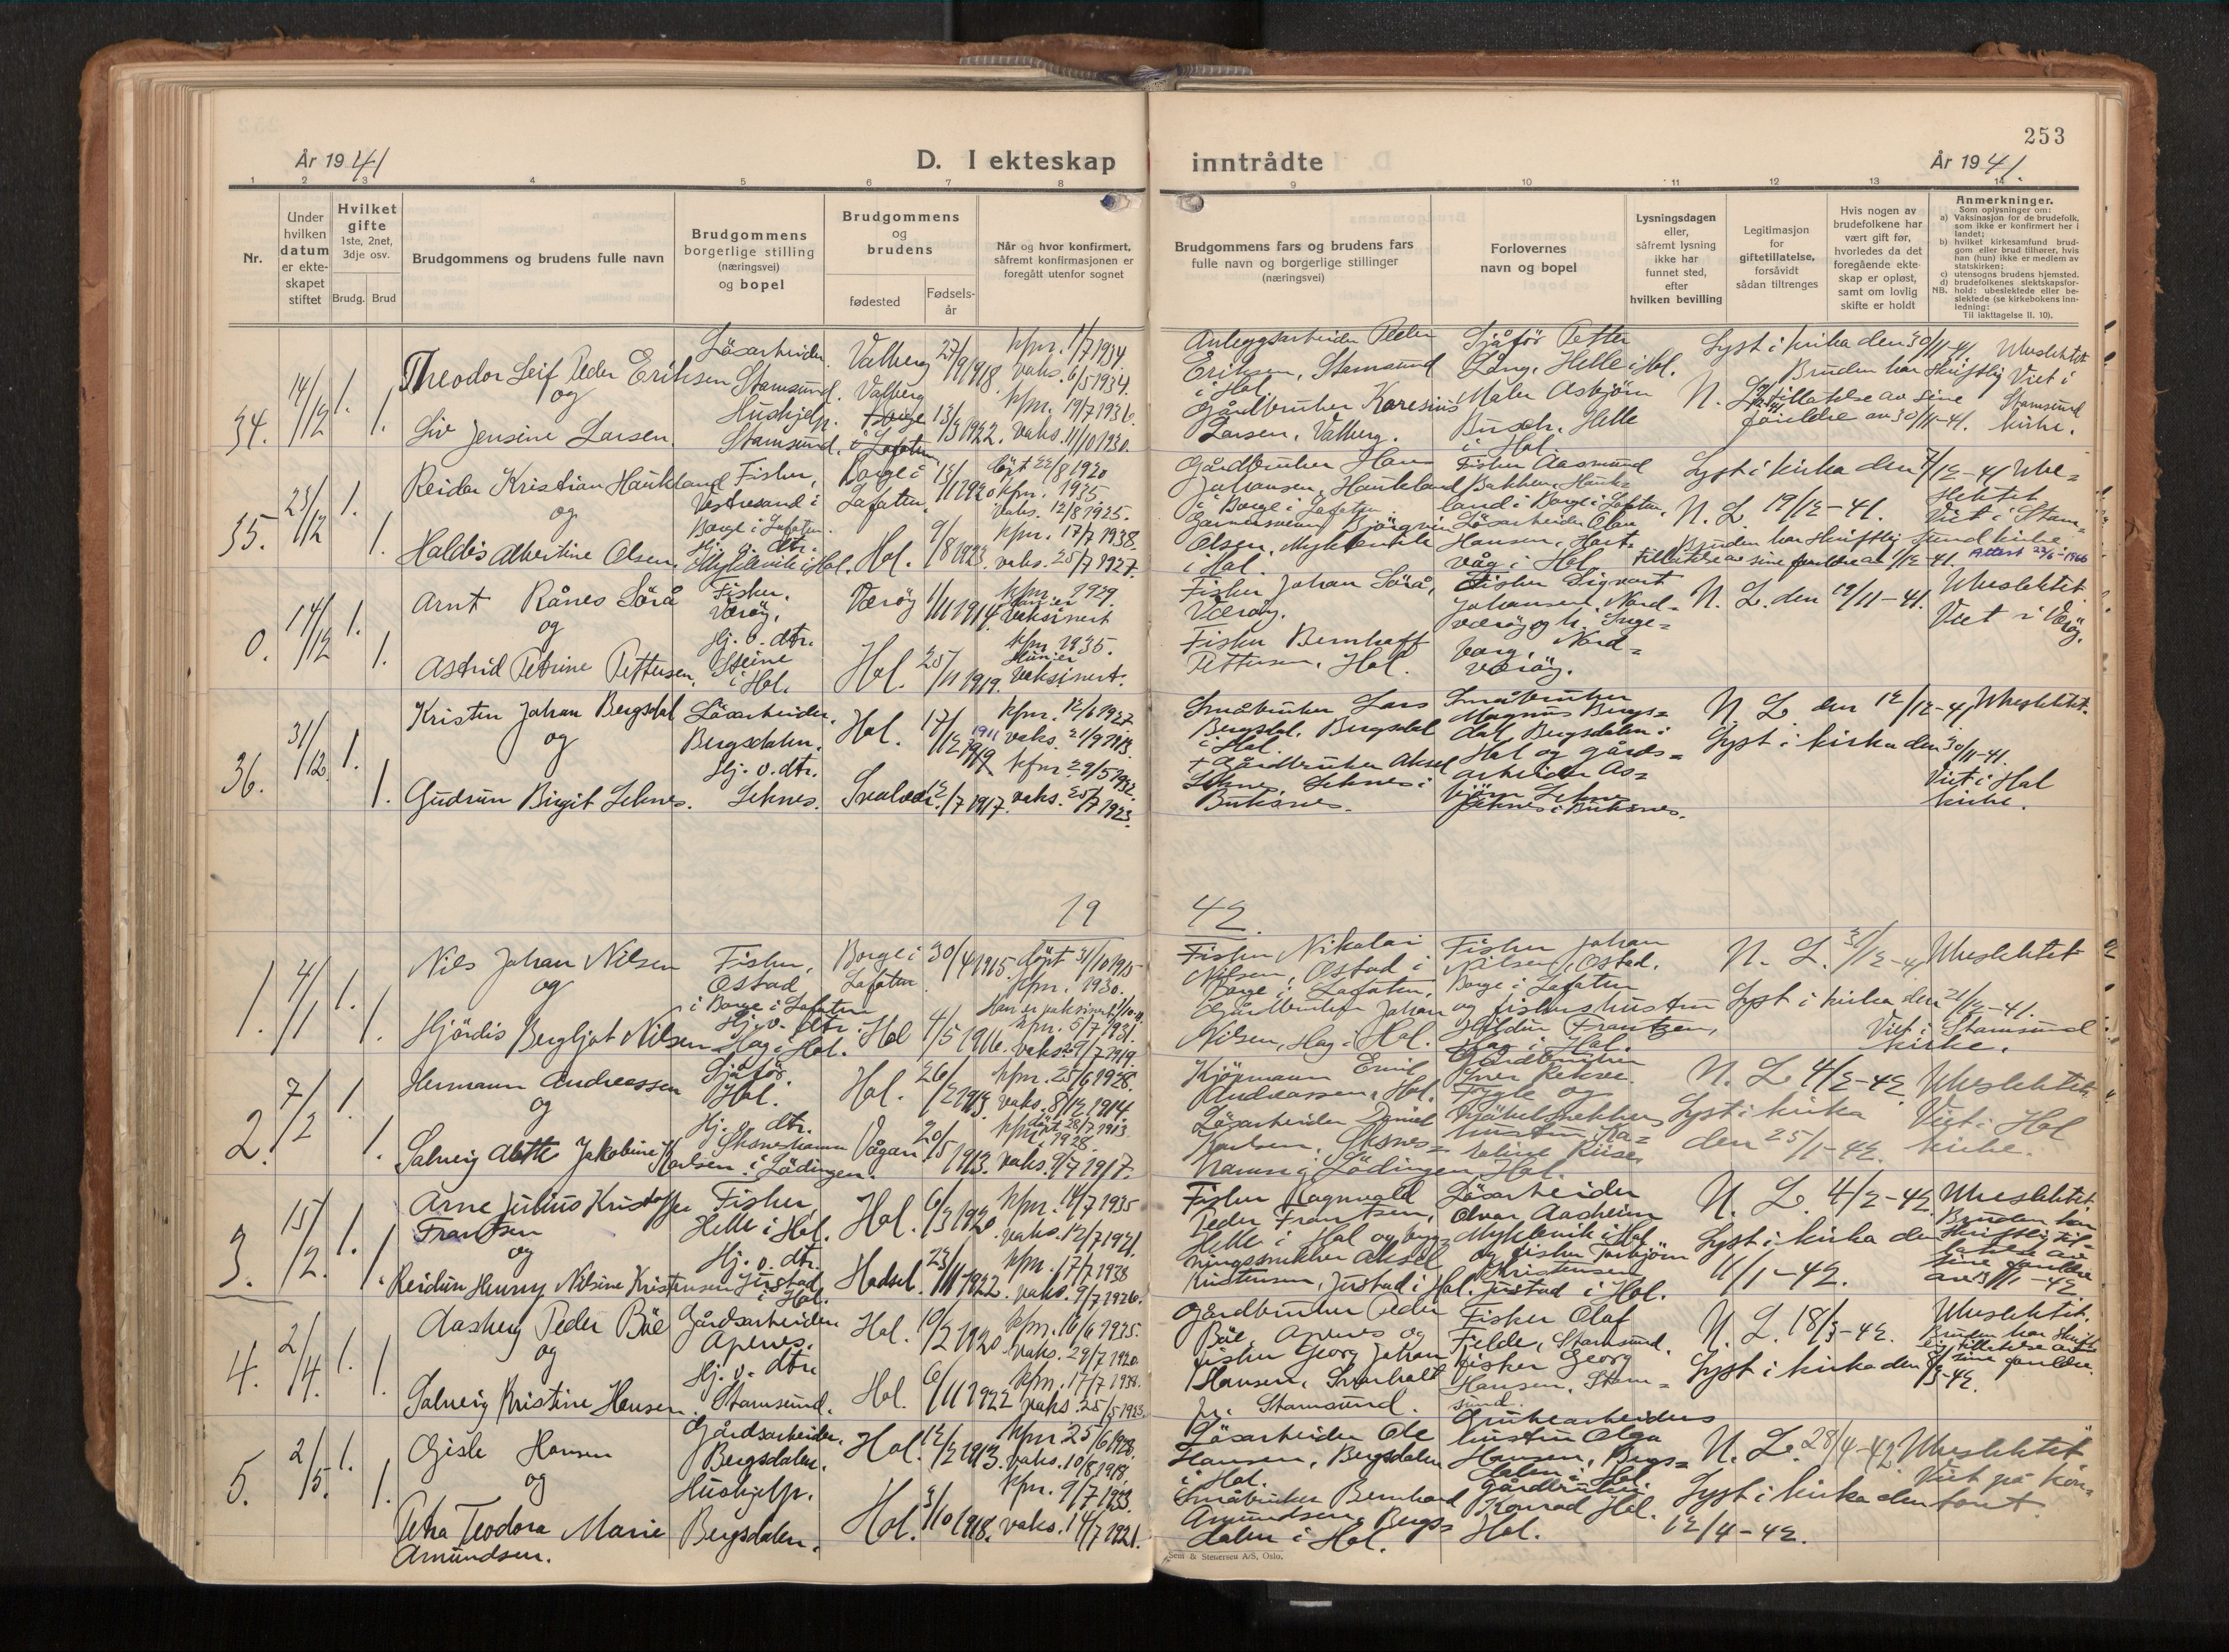 253
År 1941
D. I ekteskap
inntrådte
År 1941.
1 2 3 4 5 6 7 8 9 10 11 12 13 14
Nr.
Under hvilken datum er ekteskapet stiftet
Hvilket gifte
1ste, 2net, 3dje osv.
Brudg. Brud
Brudgommens og brudens fulle navn
Brudgommens borgerlige stilling (næringsvei) og bopel
Brudgommens og brudens
fødested
Fødselsår
Når og hvor konfirmert, såfremt konfirmasjonen er foregått utenfor sognet
Brudgommens fars og brudens fars fulle navn og borgerlige stillinger (næringsvei)
Forlovernes navn og bopel
Lysningsdagen eller, såfremt lysning ikke har funnet sted, efter hvilken bevilling
Legitimasjon for giftetillatelse, forsåvidt sådan tiltrenges
Hvis nogen av brudefolkene har vært gift før, hvorledes da det foregående ekteskap er opløst, samt om lovlig skifte er holdt
Anmerkninger.
Som oplysninger om:
a) Vaksinasjon for de brudefolk, som ikke er konfirmert her i landet;
b) hvilket kirkesamfund brudgom eller brud tilhører, hvis han (hun) ikke er medlem av statskirken;
c) utensogns brudens hjemsted.
d) brudefolkenes slektskapsforhold: ubeslektede eller beslektede (se kirkebokens innledning:
NB.
Til iakttagelse II. 10).
34. 14/12 1. 1.
Theodor Leif Peder Eriksen
og
Liv Jensine Larsen.
Løsarbeider.
Stamsund.
Hushjelp.
Stamsund.
Valberg 27/9 1918.
Valberg 13/3 1922.
kfm. 1/7 1934.
vaks. 6/5 1934.
kfm. 19/7 1936.
vaks. 11/10 1930.
Anleggsarbeider Peder
Eriksen, Stamsund
i Hol.
Gårdbruker Karesius
Larsen, Valberg.
Sjåfør Petter
Lång, Helle i Hol.
Maler Asbjørn
Busch, Helle
i Hol.
Lyst i kirka den 30/11-41.
Bruden har skriftlig
tillatelse av sine
foreldre av 30/11-41.
N. L.
Ubeslektet
Viet i
Stamsund
kirke.
35. 23/12 1. 1.
Reidar Kristian Haukland
og
Haldis Albertine Olsen.
Fisker,
Vestresand i
Borge i Lofoten.
Hj. v. dtr.
Myklevik i Hol.
Borge i
Lofoten.
Hol. 9/8 1923.
døpt 22/8 1920
kfm. 1935.
vaks. 12/8 1925.
kfm. 17/7 1938.
vaks. 25/7 1927.
Gårdbruker Hans
Johansen, Haukland
i Borge i Lofoten.
Bjørgvin
Olsen, Myklevik
i Hol.
Fisker Aasmund
Bakken, Hauk-
land i Borge i Lofoten.
Løsarbeider Olav
Hansen, Hart-
våg i Hol.
Lyst i kirka den 7/12-41
N. L. 19/12-41.
Bruden har skriftlig
tillatelse av sine foreldre av 1/12-41.
Ube-
slektet
Viet i Stam-
sund kirke.
Attest 23/6-1966
0. 14/12 1. 1.
Arnt Rånes Sörå
og
Astrid Petrine Pettersen.
Fisker.
Værøy.
Hj. v. dtr.
Steine
i Hol.
Værøy 1/11 1914.
Hol. 25/11 1919.
kfm. 1929.
Han er
vaksinert
kfm. 1935.
Hun er
vaksinert.
Fisker Johan Sörå,
Værøy.
Fisker Bernhoff
Pettersen, Hol.
Fisker Sigvart
Johansen, Nord-
værøy og h. Inge-
borg, Nord-
værøy.
N. L. den 19/11-41.
Ubeslektet.
Viet i Værøy.
36. 31/12 1. 1.
Kristen Johan Bergsdal
og
Gudrun Birgit Leknes.
Løsarbeider.
Bergsdalen.
Hj. v. dtr.
Leknes.
Hol. 17/12 1911
Svolvær 12/7 1917.
kfm. 12/6 1927
vaks. 21/9 1913.
kfm. 29/5 1932.
vaks. 25/7 1923.
Småbruker Lars
Bergsdal, Bergsdal
i Hol.
+ Gårdbruker Aksel
Leknes, Leknes i
Buksnes.
Småbruker
Magnus Bergs-
dal, Bergsdalen i
Hol og gårds-
arbeider As-
bjørn Leknes
Leknes i Buksnes.
N. L. den 12/12-41
Lyst i kirka den 30/11-41.
Ubeslektet.
Viet i Hol
kirke.
19 42.
1. 4/1 1. 1.
Nils Johan Nilsen
og
Hjørdis Bergljot Nilsen
Fisker,
Ostad
i Borge i Lofoten
Hj. v. dtr.
Hag i Hol.
Borge i
Lofoten
30/4 1915.
Hol 4/5 1916.
døpt 31/10 1915
kfm. 1930.
Han er vaksinert
kfm. 5/7 1931.
vaks. 29/7 1919.
Fisker Nikolai
Nilsen, Ostad i
Borge i Lofoten,
Gårdbruker Johan
Nilsen, Hag i Hol.
Fisker Johan
Nilsen, Ostad,
Borge i Lofoten
og fiskerhustru
Hildur Frantzen,
Hag i Hol.
N. L. 31/12-41
Lyst i kirka den 21/12-41.
Ubeslektet
Viet i Stamsund
kirke.
2. 7/2 1. 1.
Hermann Andreassen
og
Solveig Alette Jakobine Karlsen
Sjåfør.
Hol.
Hj. v. dtr.
i Lødingen.
Hol. 26/2 1913.
Vågan 20/5 1913.
kfm. 25/6 1928.
vaks. 8/12 1914.
døpt 28/7 1913.
kfm. i 1928.
vaks. 9/7 1917.
Kjøpmann Emil
Andreassen, Hol.
Løsarbeider Daniel
Karlsen, Oksnes-
hamn i Lødingen
Gårdbruker
Iver Reksen.
Fygle og
hustru Ka-
roline Riise,
Hol.
N. L. 4/2-42
Lyst i kirka
den 25/1-42.
Ubeslektet.
Viet i Hol
kirke.
3. 15/2. 1. 1.
Arne Julius Kristoffer
Frantsen
og
Reidun Henny Nilsine Kristensen
Fisker,
Helle i Hol.
Hj. v. dtr.
Justad
i Hol.
Hol. 6/3 1920
Hadsel. 23/11 1922.
kfm. 14/7 1935
vaks. 12/7 1921.
kfm. 17/7 1938
vaks. 9/7 1926.
Fisker Ragnvald
Peder Frantsen,
Helle i Hol og byg-
ningssnekker Aksel
Kristensen, Justad i Hol.
Løsarbeider
Alvar Aasheim
Myklevik i Hol
og fisker Torbjørn
Kristensen
Justad i Hol.
N. L. 4/2-42
Lyst i kirka den
11/1-42.
Ubeslektet.
Bruden har
skriftlig til-
latelse av
sine foreldre
4. 2/4. 1. 1.
Aasberg Peder Böe
og
Solveig Kristine Hansen.
Gårdsarbeider
Apnes.
Hj. v. dtr.
Stamsund.
Hol. 10/2 1920
Hol. 6/11 1922
kfm. 16/6 1935.
vaks. 29/7 1920.
kfm. 17/7 1938.
vaks. 25/5 1923.
Gårdbruker Peder
Böe, Apnes og
fisker Georg Johan
Hansen, Svarholt
pr. Stamsund.
Fisker Olaf
Felde, Stamsund.
Fisker Georg
Hansen, Stam-
sund.
N. L. 18/3-42.
Lyst i kirka den 8/3-42.
Ubeslektet.
Bruden har skrift-
lig tillatelse av
sine foreldre.
5. 2/5. 1. 1.
Gisle Hansen
og
Petra Teodora Marie
Amundsen.
Gårdsarbeider.
Bergsdalen.
Hushjelp.
Bergsdalen.
Hol. 12/2 1913.
Hol. 3/10 1918.
kfm. 25/6 1928.
vaks. 10/8 1918.
kfm. 9/7 1933.
vaks. 14/7 1921.
Løsarbeider Ole
Hansen, Bergsdalen
i Hol.
Småbruker Bernhard
Amundsen, Bergs-
dalen i Hol.
Grubearbeiders
hustru Olga
Hansen, Bergs-
dalen i Hol
Gårdbruker
Konrad Hol.
Hol.
N. L. 28/4-42
Lyst i kirka den
12/4-42.
Ubeslektet
Viet på kon-
toret.
Sem & Stenersen A/S, Oslo.